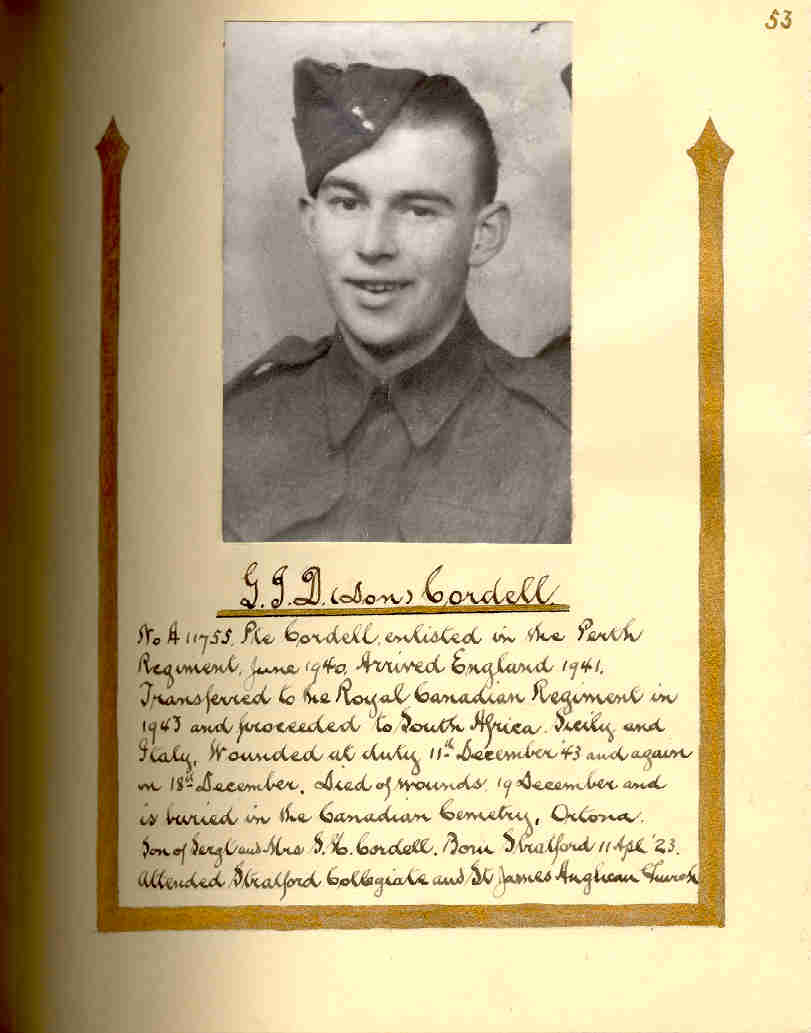 53
G. I. D. (Don) Cordell.
No A 11755. Pte Cordell, enlisted in the Perth
Regiment, June 1940, Arrived England 1941.
Transferred to the Royal Canadian Regiment in
1943 and proceeded to South Africa. Sicily and
Italy. Wounded at duty 11th December '43 and again
on 18th December. Died of wounds 19 December and
is buried in the Canadian Cemetry, Ortona.
Son of Sergt and Mrs Cordell. Born Stratford 11 Apl '23.
Attended Stratford Collegiate and St James Anglican Church